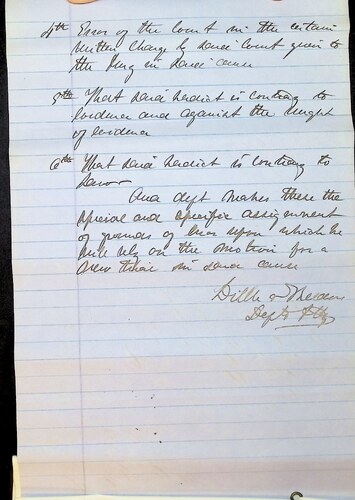 4th Error of the Court in the certain
written charge by said Court given to
the Jury in said cause
5th That said verdict is contrary to
evidence and against the weight
of evidence
6th That said verdict is contrary to
law
And deft makes these the
special and specific assignment
of grounds of error upon which he
will rely on the motion for a
new trial in said cause
Dille &
Defts Atty